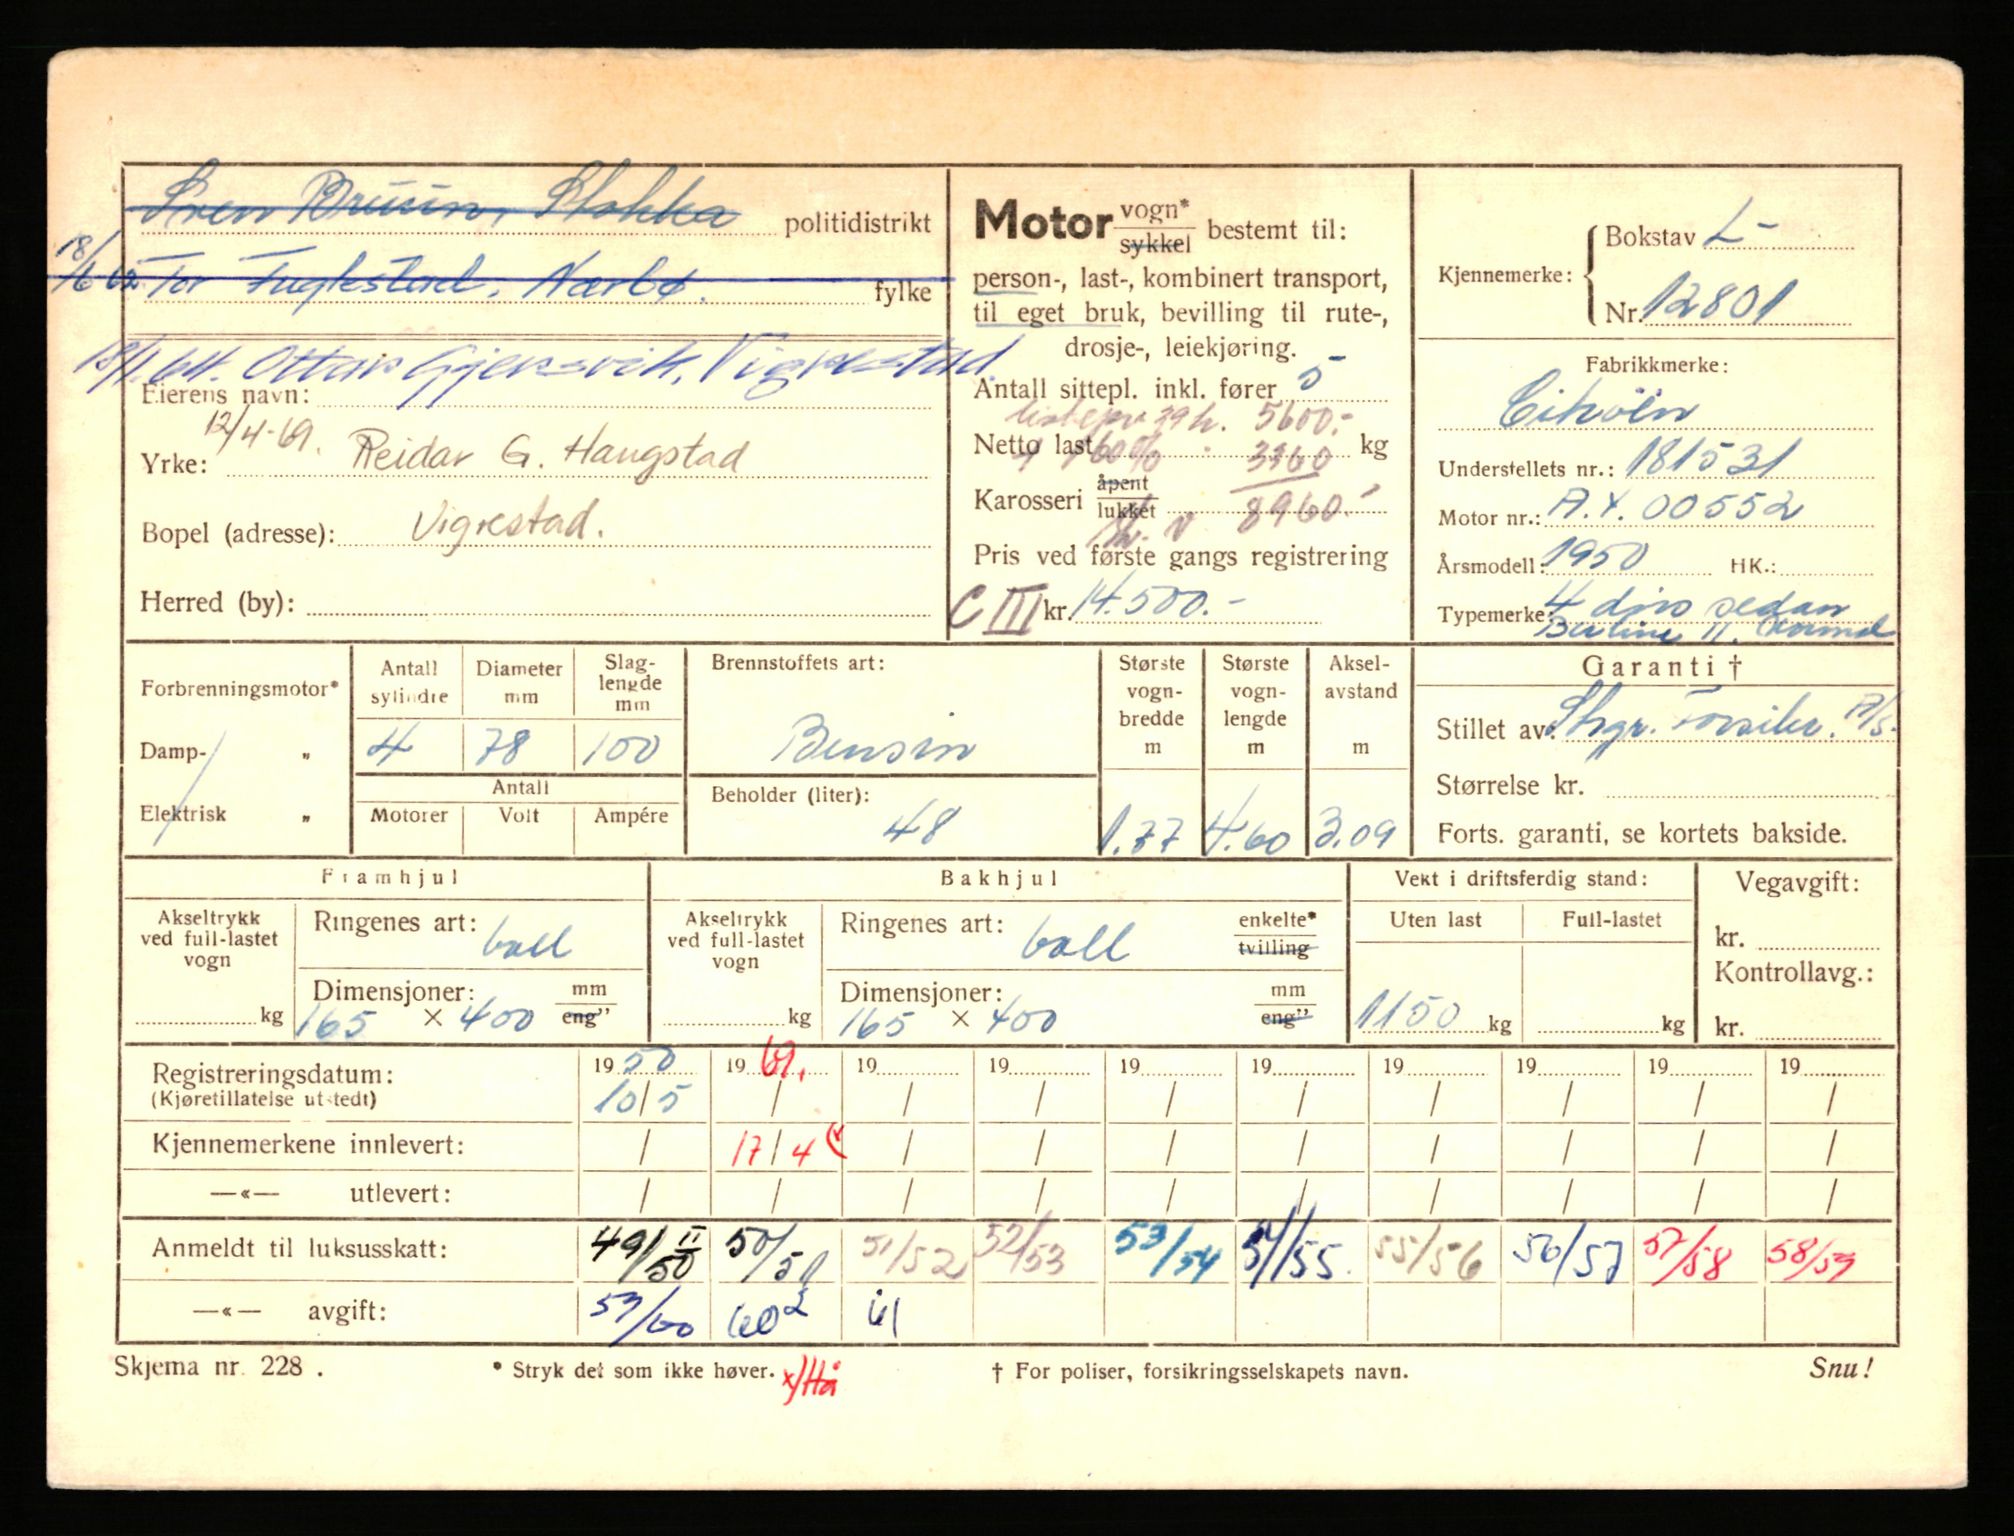 Sven Bruun, Stokka politidistrikt
18/6 62. Tor Fuglestad, Nærbø. fylke
Ottar Gjersvik, Vigrestad.
Eierens navn:
12/4-69.
Yrke: Reidar G. Haugstad
Bopel (adresse): Vigrestad.
Herred (by):
Motor vogn* sykkel bestemt til:
person-, last-, kombinert transport,
til eget bruk, bevilling til rute-,
drosje-, leiekjøring.
Antall sittepl. inkl. fører 5
listepr 39 h. 5600.-
Netto last 60% 3360 kg
Karosseri åpent lukket 8960.-
Pris ved første gangs registrering
C III kr. 14.500.-
Kjennemerke: Bokstav L-
Nr. 12801
Fabrikkmerke:
Citroën
Understellets nr.: 181531
Motor nr.: A.Y. 00552
Årsmodell: 1950 HK.:
Typemerke: 4 dørs sedan
Berline 11. Normal
Forbrenningsmotor*
Damp- „
Elektrisk „
Antall sylindre Diameter mm Slag-lengde mm
4 78 100
Antall
Motorer Volt Ampére
Brennstoffets art:
Bensin
Beholder (liter):
48
Største vogn-bredde m
1.77
Største vogn-lengde m
4.60
Aksel-avstand m
3.09
Garanti †
Stillet av: Stvgr. Forsikr. A/S.
Størrelse kr.
Forts. garanti, se kortets bakside.
Framhjul
Akseltrykk ved full-lastet vogn
kg
Ringenes art: ball
Dimensjoner: mm
165 × 400 eng"
Bakhjul
Akseltrykk ved full-lastet vogn
kg
Ringenes art: ball enkelte* tvilling
Dimensjoner: mm
165 × 400 eng"
Vekt i driftsferdig stand:
Uten last Full-lastet
1150 kg kg
Vegavgift:
kr.
Kontrollavg.:
kr.
Registreringsdatum: 1950 1969. 19 19 19 19 19 19 19 19
(Kjøretillatelse utstedt) 10/5 / / / / / / / / /
Kjennemerkene innlevert: / 17/4 (x / / / / / / / /
—«— utlevert: / / / / / / / / /
Anmeldt til luksusskatt: 49/50 II 50/50 51/52 52/53 53/54 54/55. 55/56 56/57 57/58 58/59
—«— avgift: 59/60 60² 61
Skjema nr. 228 . * Stryk det som ikke høver. x)Hå † For poliser, forsikringsselskapets navn. Snu!